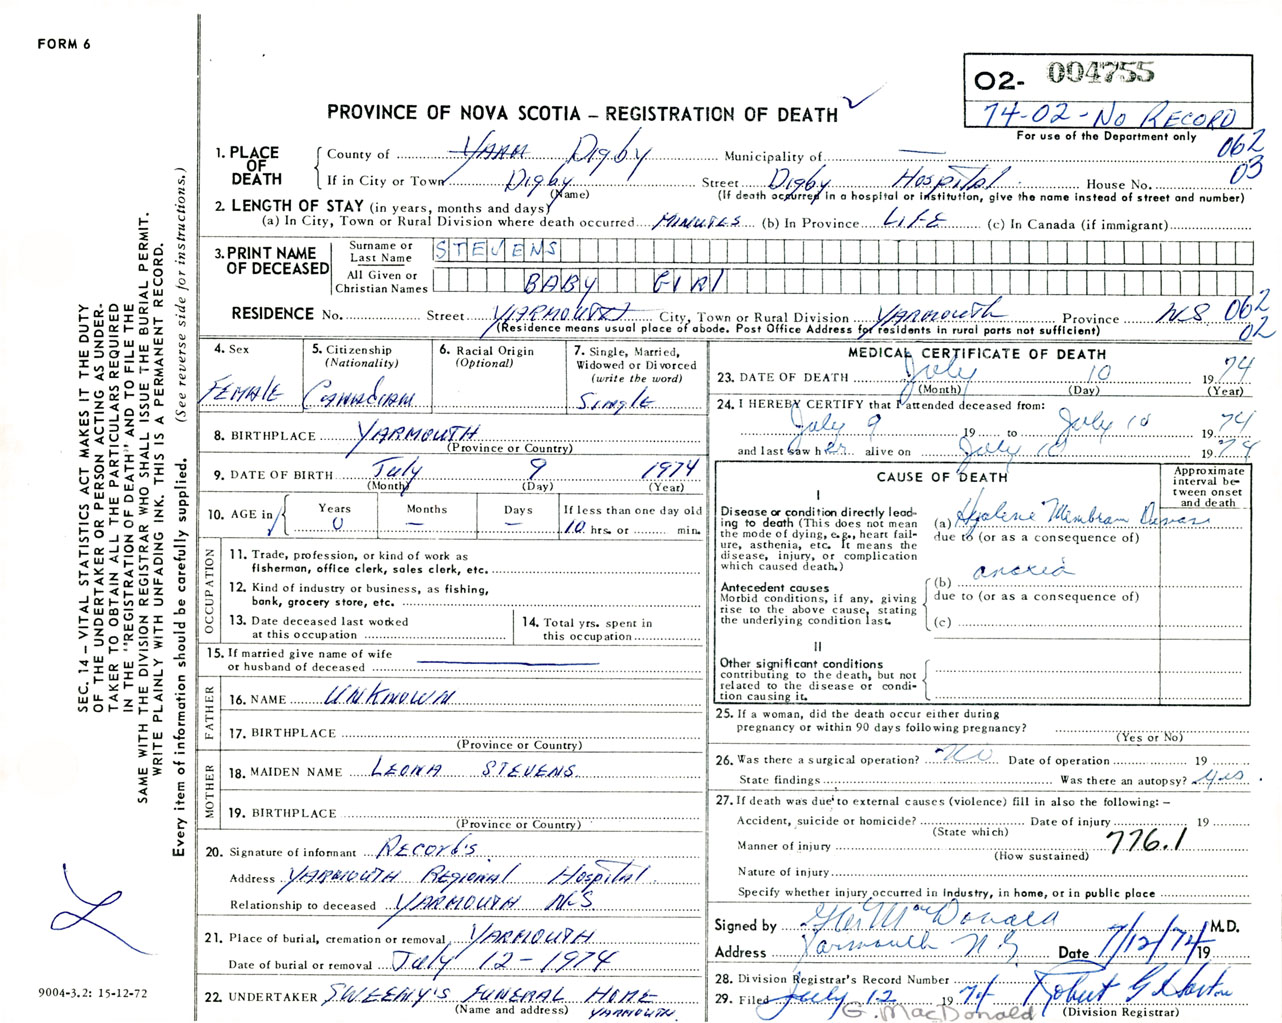 FORM 6
O2- 004755
74-02-NO RECORD
For use of the Department only
PROVINCE OF NOVA SCOTIA – REGISTRATION OF DEATH
062
03
1. PLACE OF DEATH
County of YARM Digby Municipality of —
If in City or Town Digby Street Digby Hospital House No.
(Name) (If death occurred in a hospital or institution, give the name instead of street and number)
2. LENGTH OF STAY (in years, months and days)
(a) In City, Town or Rural Division where death occurred MINUTES (b) In Province LIFE (c) In Canada (if immigrant)
3. PRINT NAME OF DECEASED
Surname or Last Name STEVENS
All Given or Christian Names BABY GIRL
RESIDENCE No. Street YARMOUTH City, Town or Rural Division YARMOUTH Province N.S. 062
(Residence means usual place of abode. Post Office Address for residents in rural parts not sufficient) 02
4. Sex
FEMALE
5. Citizenship
(Nationality)
CANADIAN
6. Racial Origin
(Optional)
7. Single, Married,
Widowed or Divorced
(write the word)
Single
8. BIRTHPLACE YARMOUTH
(Province or Country)
9. DATE OF BIRTH July 9 1974
(Month) (Day) (Year)
10. AGE in
Years Months Days If less than one day old
0 — — 10 hrs. or min.
OCCUPATION
11. Trade, profession, or kind of work as
fisherman, office clerk, sales clerk, etc.
12. Kind of industry or business, as fishing,
bank, grocery store, etc.
13. Date deceased last worked
at this occupation
14. Total yrs. spent in
this occupation
15. If married give name of wife
or husband of deceased
FATHER
16. NAME UNKNOWN
17. BIRTHPLACE
(Province or Country)
MOTHER
18. MAIDEN NAME LEONA STEVENS
19. BIRTHPLACE
(Province or Country)
20. Signature of informant RECORD'S
Address YARMOUTH REGIONAL Hospital
Relationship to deceased YARMOUTH N.S.
21. Place of burial, cremation or removal YARMOUTH
Date of burial or removal July 12-1974
22. UNDERTAKER SWEENY'S FUNERAL HOME
(Name and address) YARMOUTH
MEDICAL CERTIFICATE OF DEATH
23. DATE OF DEATH July 10 1974
(Month) (Day) (Year)
24. I HEREBY CERTIFY that I attended deceased from:
July 9 19 to July 10 1974
and last saw her alive on July 10 1974
CAUSE OF DEATH
Approximate
interval be-
tween onset
and death
I
Disease or condition directly lead-
ing to death (This does not mean
the mode of dying, e.g., heart fail-
ure, asthenia, etc. It means the
disease, injury, or complication
which caused death.)
(a) Hyalene Membram
due to (or as a consequence of)
Antecedent causes
Morbid conditions, if any, giving
rise to the above cause, stating
the underlying condition last.
(b) anoxia
due to (or as a consequence of)
(c)
II
Other significant conditions
contributing to the death, but not
related to the disease or condi-
tion causing it.
25. If a woman, did the death occur either during
pregnancy or within 90 days following pregnancy?
(Yes or No)
26. Was there a surgical operation? No Date of operation 19
State findings Was there an autopsy? Yes
27. If death was due to external causes (violence) fill in also the following: –
Accident, suicide or homicide? Date of injury 19
(State which)
Manner of injury 776.1
(How sustained)
Nature of injury
Specify whether injury occurred in industry, in home, or in public place
Signed by MacDonald M.D.
Address Yarmouth N.S. Date 7/12/74 19
28. Division Registrar's Record Number
29. Filed July 12 1974 Robert
G. MacDonald (Division Registrar)
SEC. 14 – VITAL STATISTICS ACT MAKES IT THE DUTY
OF THE UNDERTAKER OR PERSON ACTING AS UNDER-
TAKER TO OBTAIN ALL THE PARTICULARS REQUIRED
IN THE "REGISTRATION OF DEATH" AND TO FILE THE
SAME WITH THE DIVISION REGISTRAR WHO SHALL ISSUE THE BURIAL PERMIT.
WRITE PLAINLY WITH UNFADING INK. THIS IS A PERMANENT RECORD.
Every item of information should be carefully supplied. (See reverse side for instructions.)
9004-3.2: 15-12-72